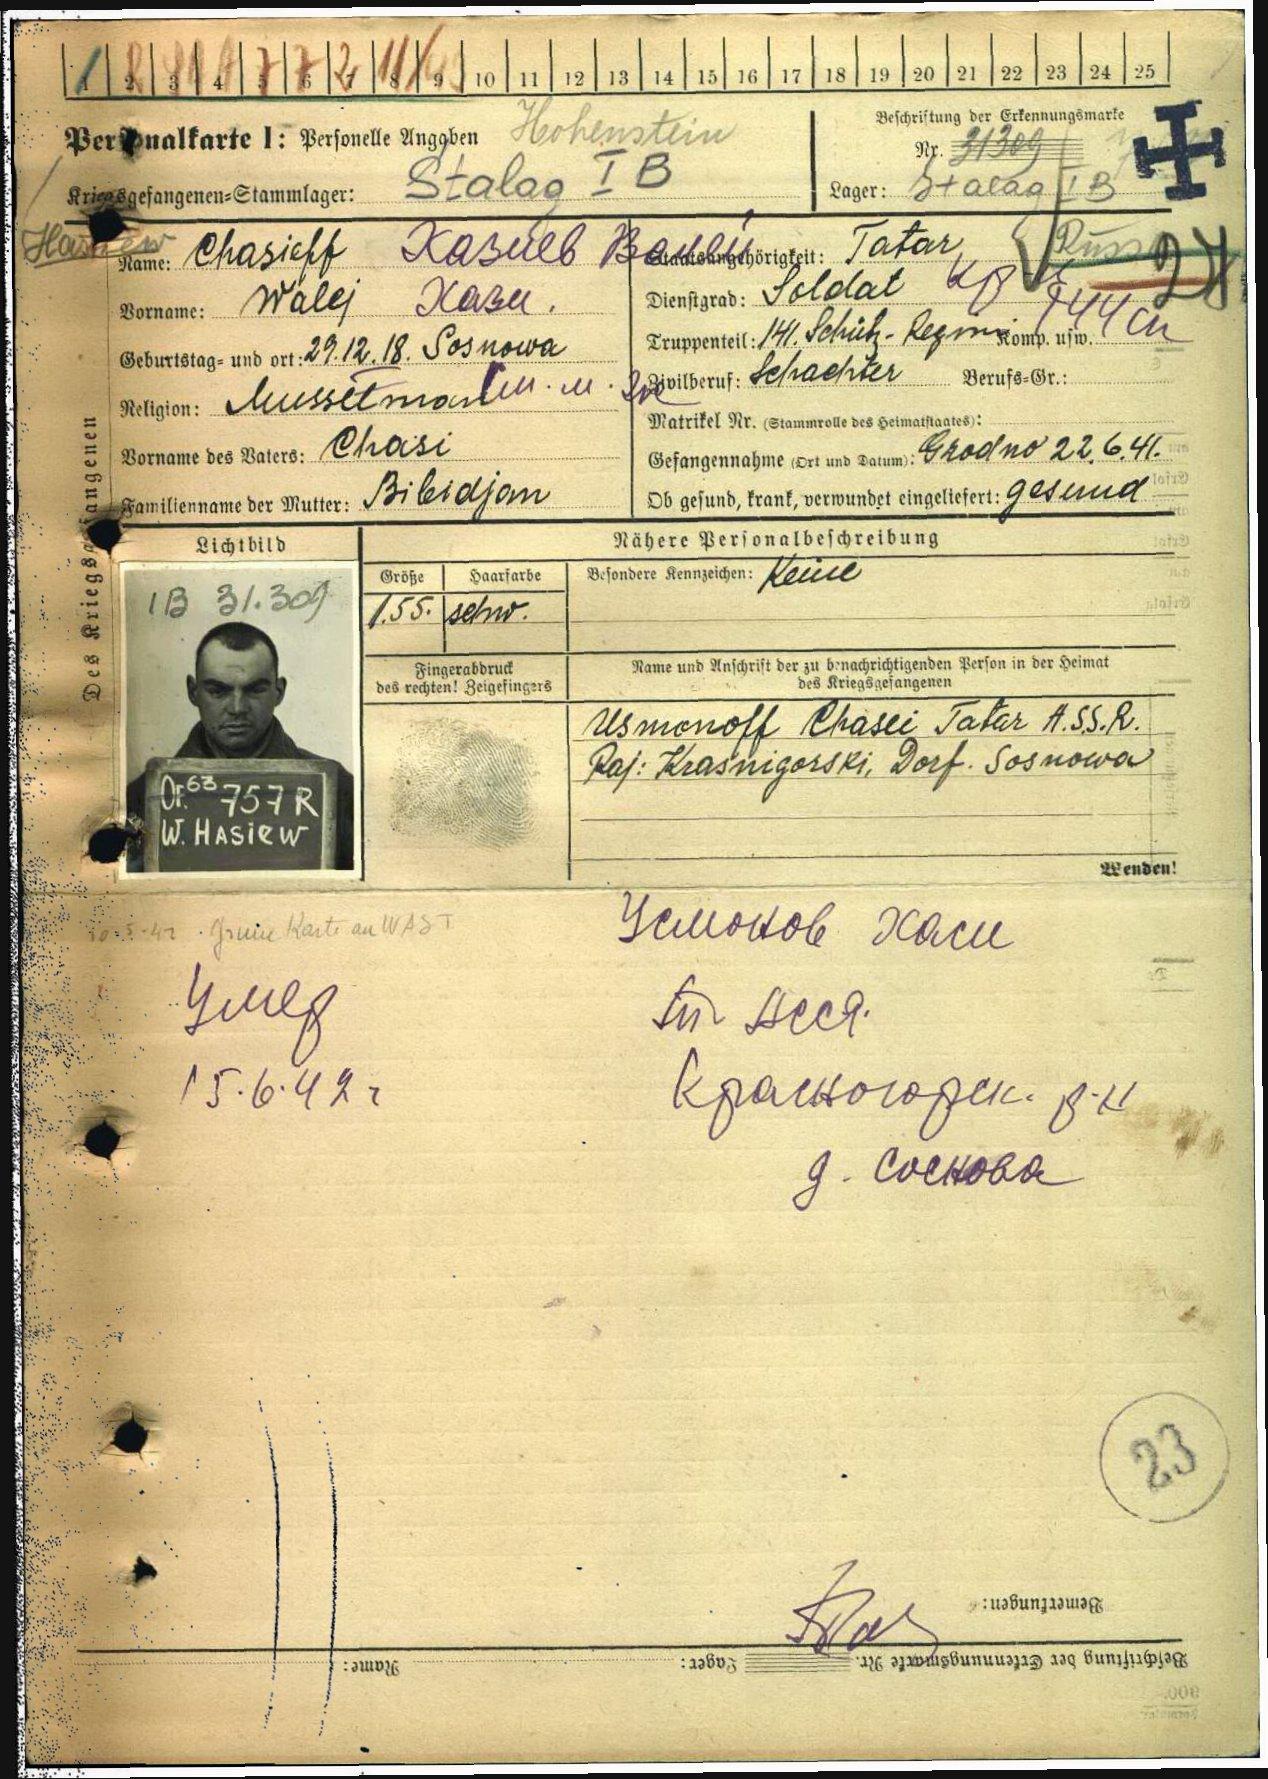 1 2 3 4 5 6 7 8 9 10 11 12 13 14 15 16 17 18 19 20 21 22 23 24 25
Personalkarte I: Personelle Angaben
Hohenstein
Kriegsgefangenen-Stammlager: Stalag I B
Beschriftung der Erkennungsmarke
Nr. 31309
Lager: Stalag I B
Des Kriegsgefangenen
Name: Chasieff Хазиев Валей
Vorname: Walej Хази.
Geburtstag- und ort: 29.12.18. Sosnowa
Religion: Musselman
Vorname des Vaters: Chasi
Familienname der Mutter: Bibidjan
Staatsangehörigkeit: Tatar
Dienstgrad: Soldat
Truppenteil: 141. Schütz-Regim Komp. usw. 144
Zivilberuf: Schachter Berufs-Gr.:
Matrikel Nr. (Stammrolle des Heimatstaates):
Gefangennahme (Ort und Datum): Grodno 22.6.41.
Ob gesund, krank, verwundet eingeliefert: gesund
Lichtbild
1B 31.309
Or.63 757 R
W. HASIEW
Nähere Personalbeschreibung
Größe Haarfarbe
1.55. schw.
Besondere Kennzeichen: Keine
Fingerabdruck
des rechten! Zeigefingers
Name und Anschrift der zu benachrichtigenden Person in der Heimat
des Kriegsgefangenen
Usmonoff Chasei Tatar A.S.S.R.
Raj: Krasnigorski, Dorf. Sosnowa
Wenden!
10.5.42 Grüne Karte an WAST
Умер
15.6.42г
Усмонов Хаси
Красногорск. р-н
д. Соснова
23
Bemerkungen:
Beschriftung der Erkennungsmarke Nr. Lager: Name: